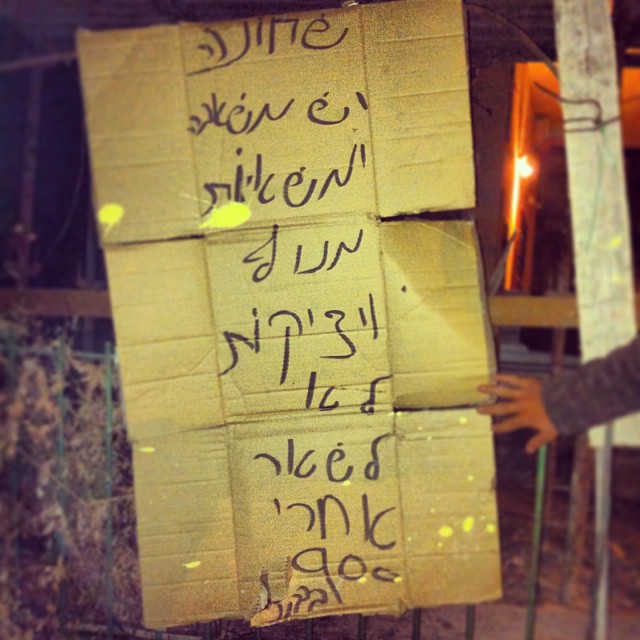 שחונה
יש משאבה
ומשאיות
מנוף
ויציקות
לא
לשאר
אחרי
900